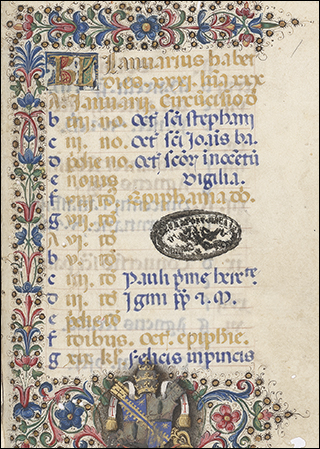 KL Ianuarius habet
dies. xxxi. luna xxx
A Ianuarij. Circuncisio d
b iiij. no. Oct. sci stephani
c iij. no. Oct. sci Ioanis
d pdie no. Oct. scor inocetu
e nonis vigilia.
f viij. id Epiphania
g vij. id
A vi. id
b v. id
c iiij. id Pauli prime
d iij. id Igini pp & M.
e pdie id
f idibus. Oct. epiphie.
g xix. kl. felicis inpincis